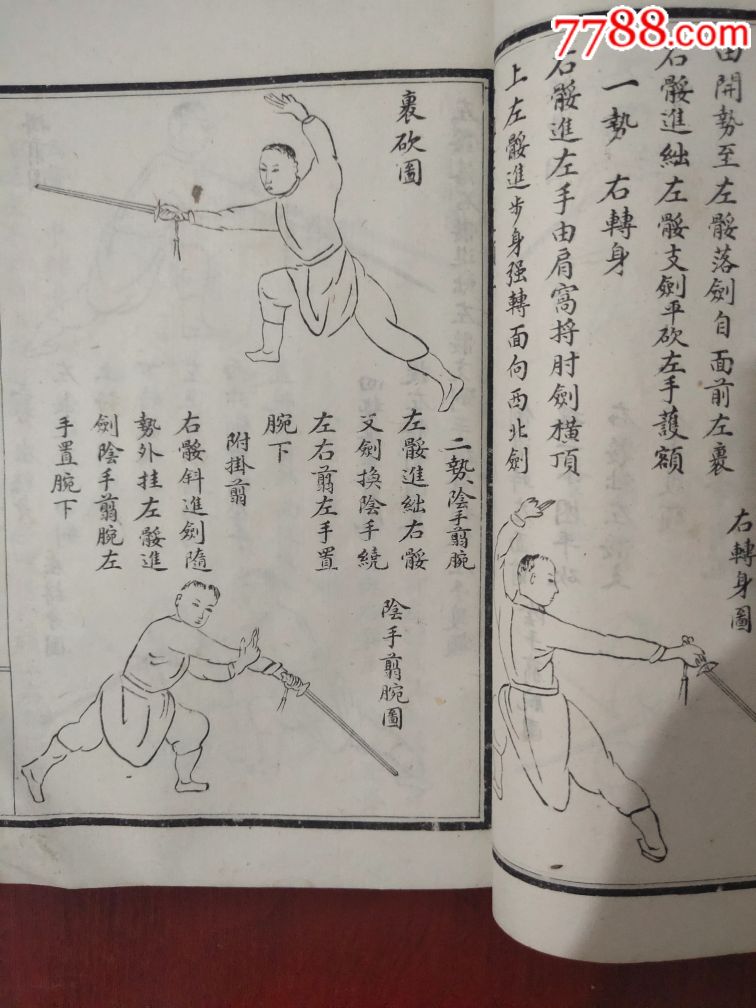 7788.com
由開勢至左骽落劍自面前左裹
右骽進絀左骽支劍平砍左手護額
一勢 右轉身
右骽進左手由肩窩捋肘劍横頂
上左骽進步身强轉面向西北劍
右轉身圖
裹砍圖
二勢陰手翦腕
左骽進絀右骽
叉劍換陰手繞
左右翦左手置
腕下
附掛翦
右骽斜進劍隨
勢外挂左骽進
劍陰手翦腕左
手置腕下
陰手翦腕圖